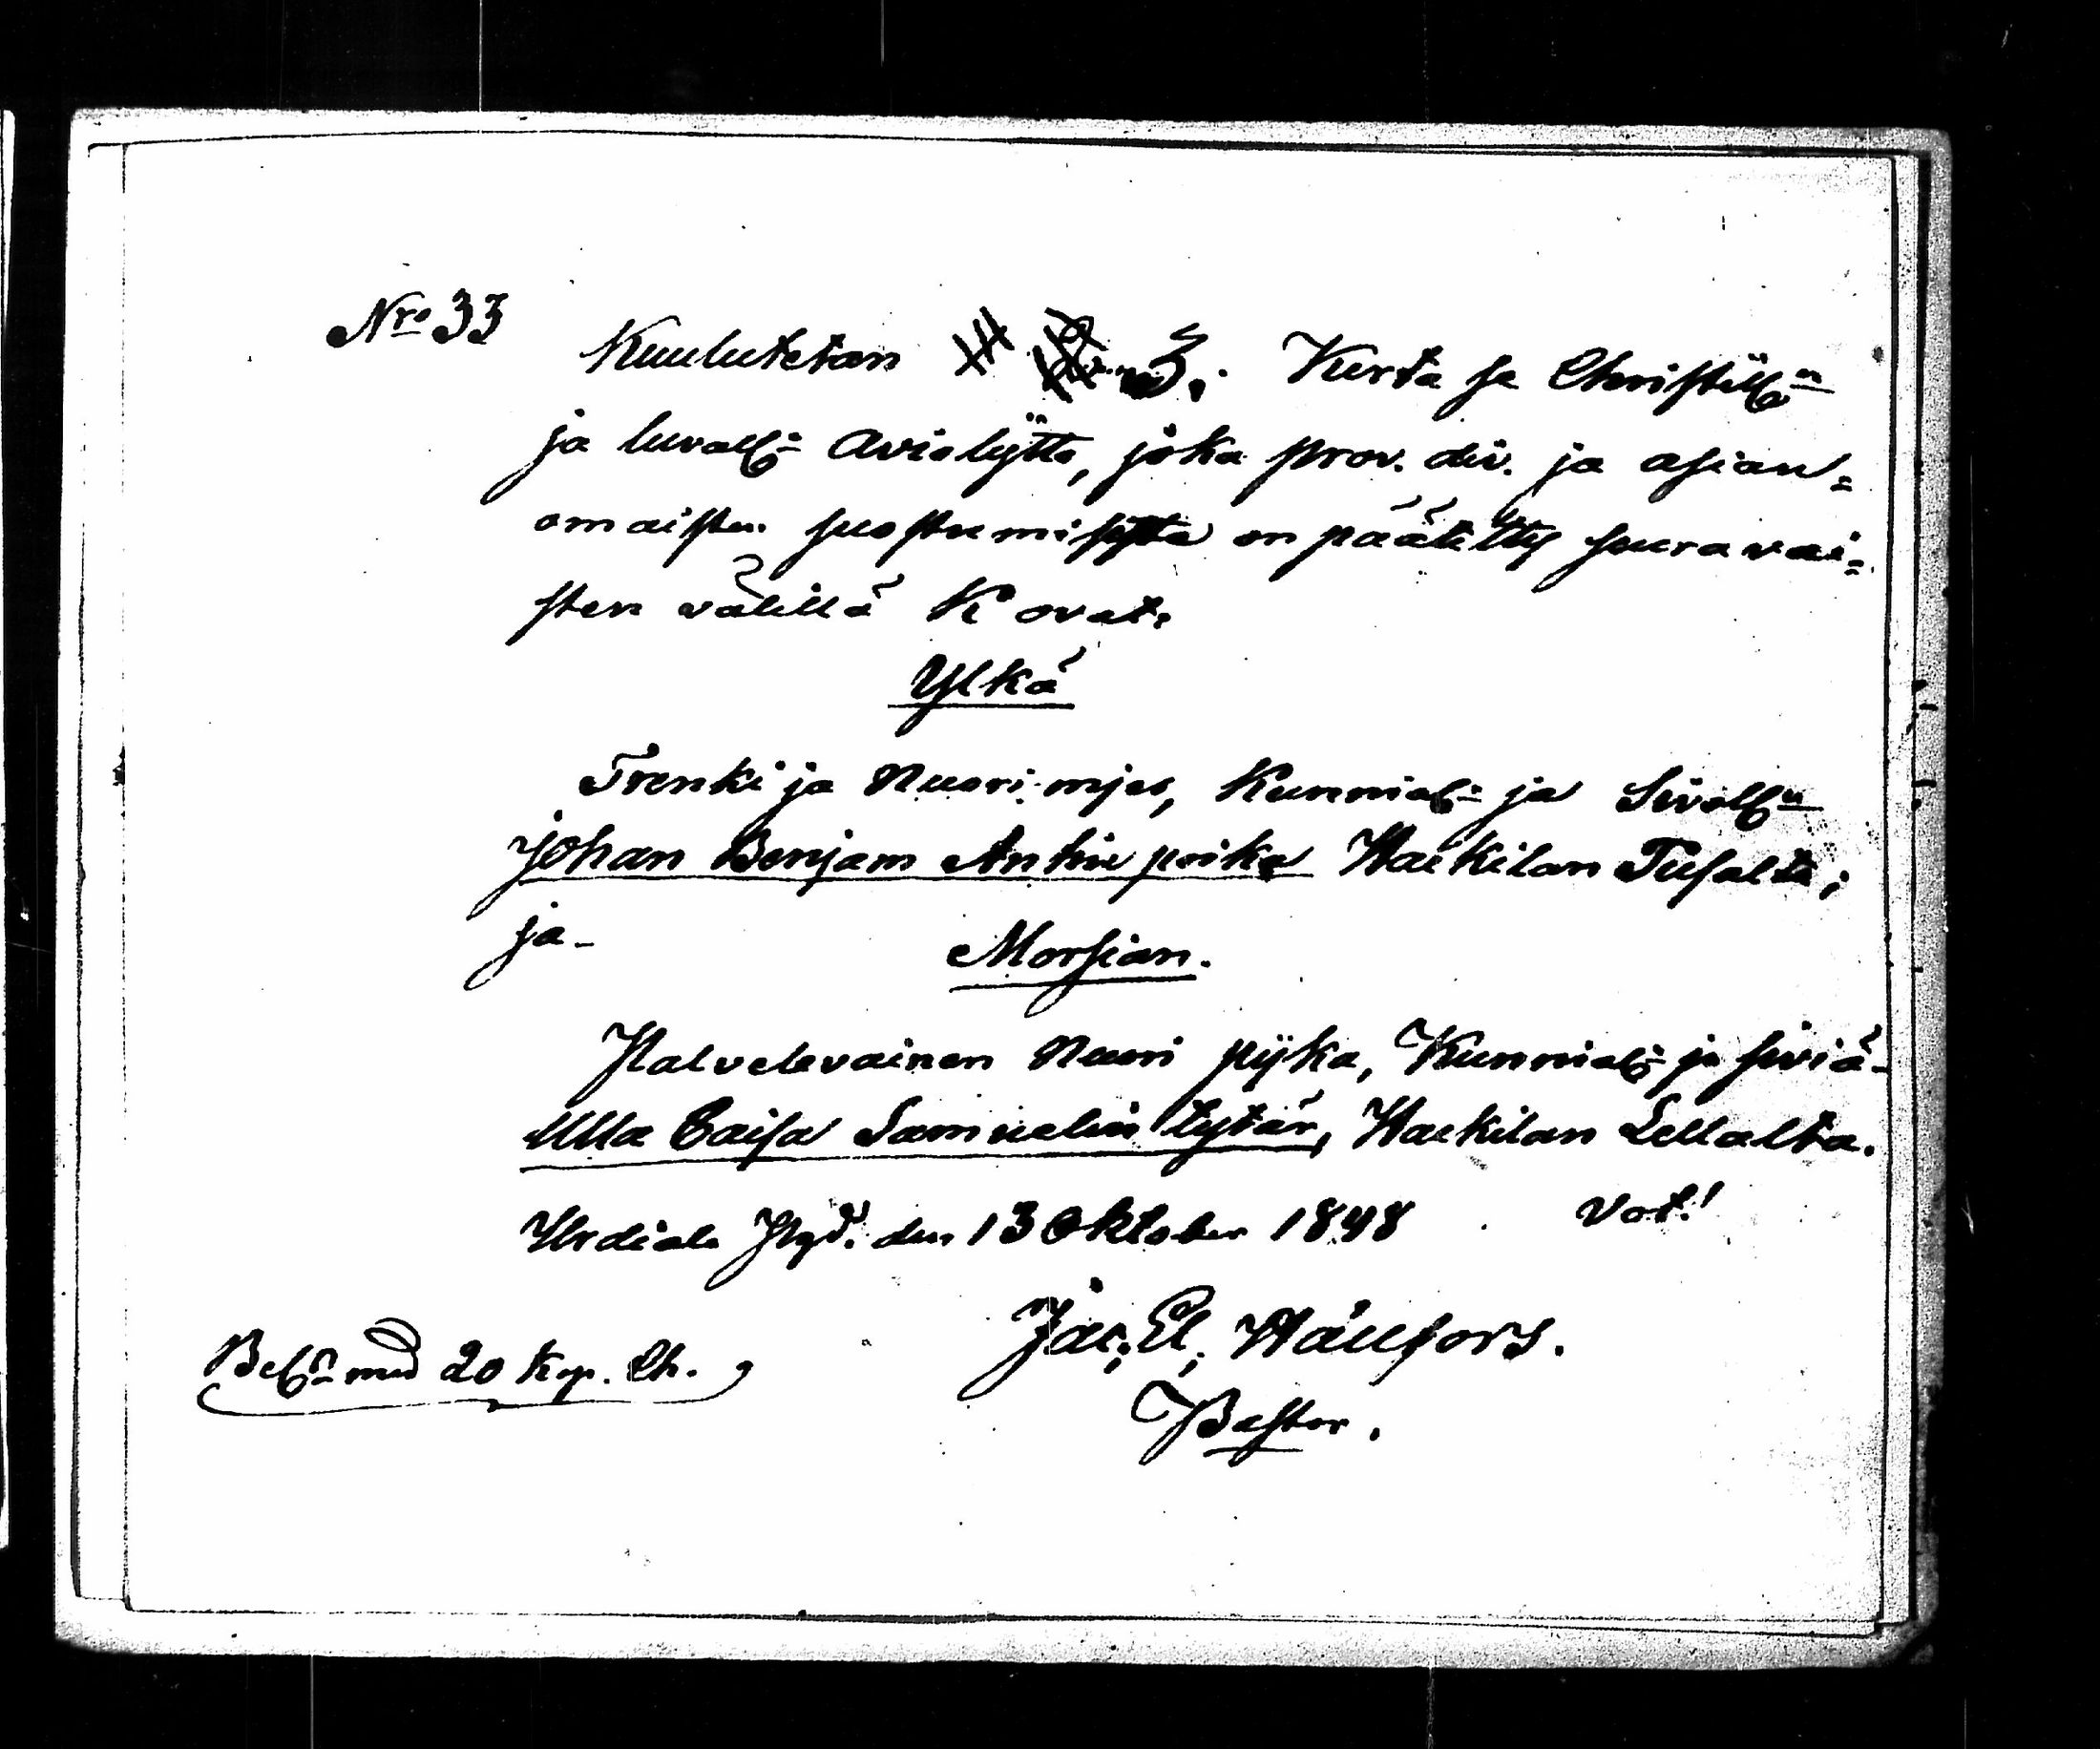 Nro 33
Kuulutetan 3. Kerta se Christill:n
ja luvall:n Aviolijtto, joka prov. div. ja asian=
omaisten suostumisesta on päätetty seuravai=
sten välillä K ovat.
Ylkä
Trenki ja Nuori mjes, Kunnial:n ja Sivell:n
Johan Benjam Antin poika Haekilan Tusalta;
ja-
Morsian.
Palvelevainen Nuori pijka, Kunnial:n ja siviä-
Ulla Caisa Samuelin tytär, Haekilan Lellalta.
Urdiala Pgd. den 13 Oktober 1848 Vot.!
Jac. El. Hällfors.
Pastor.
Bel:n med 20 kop. Ch.